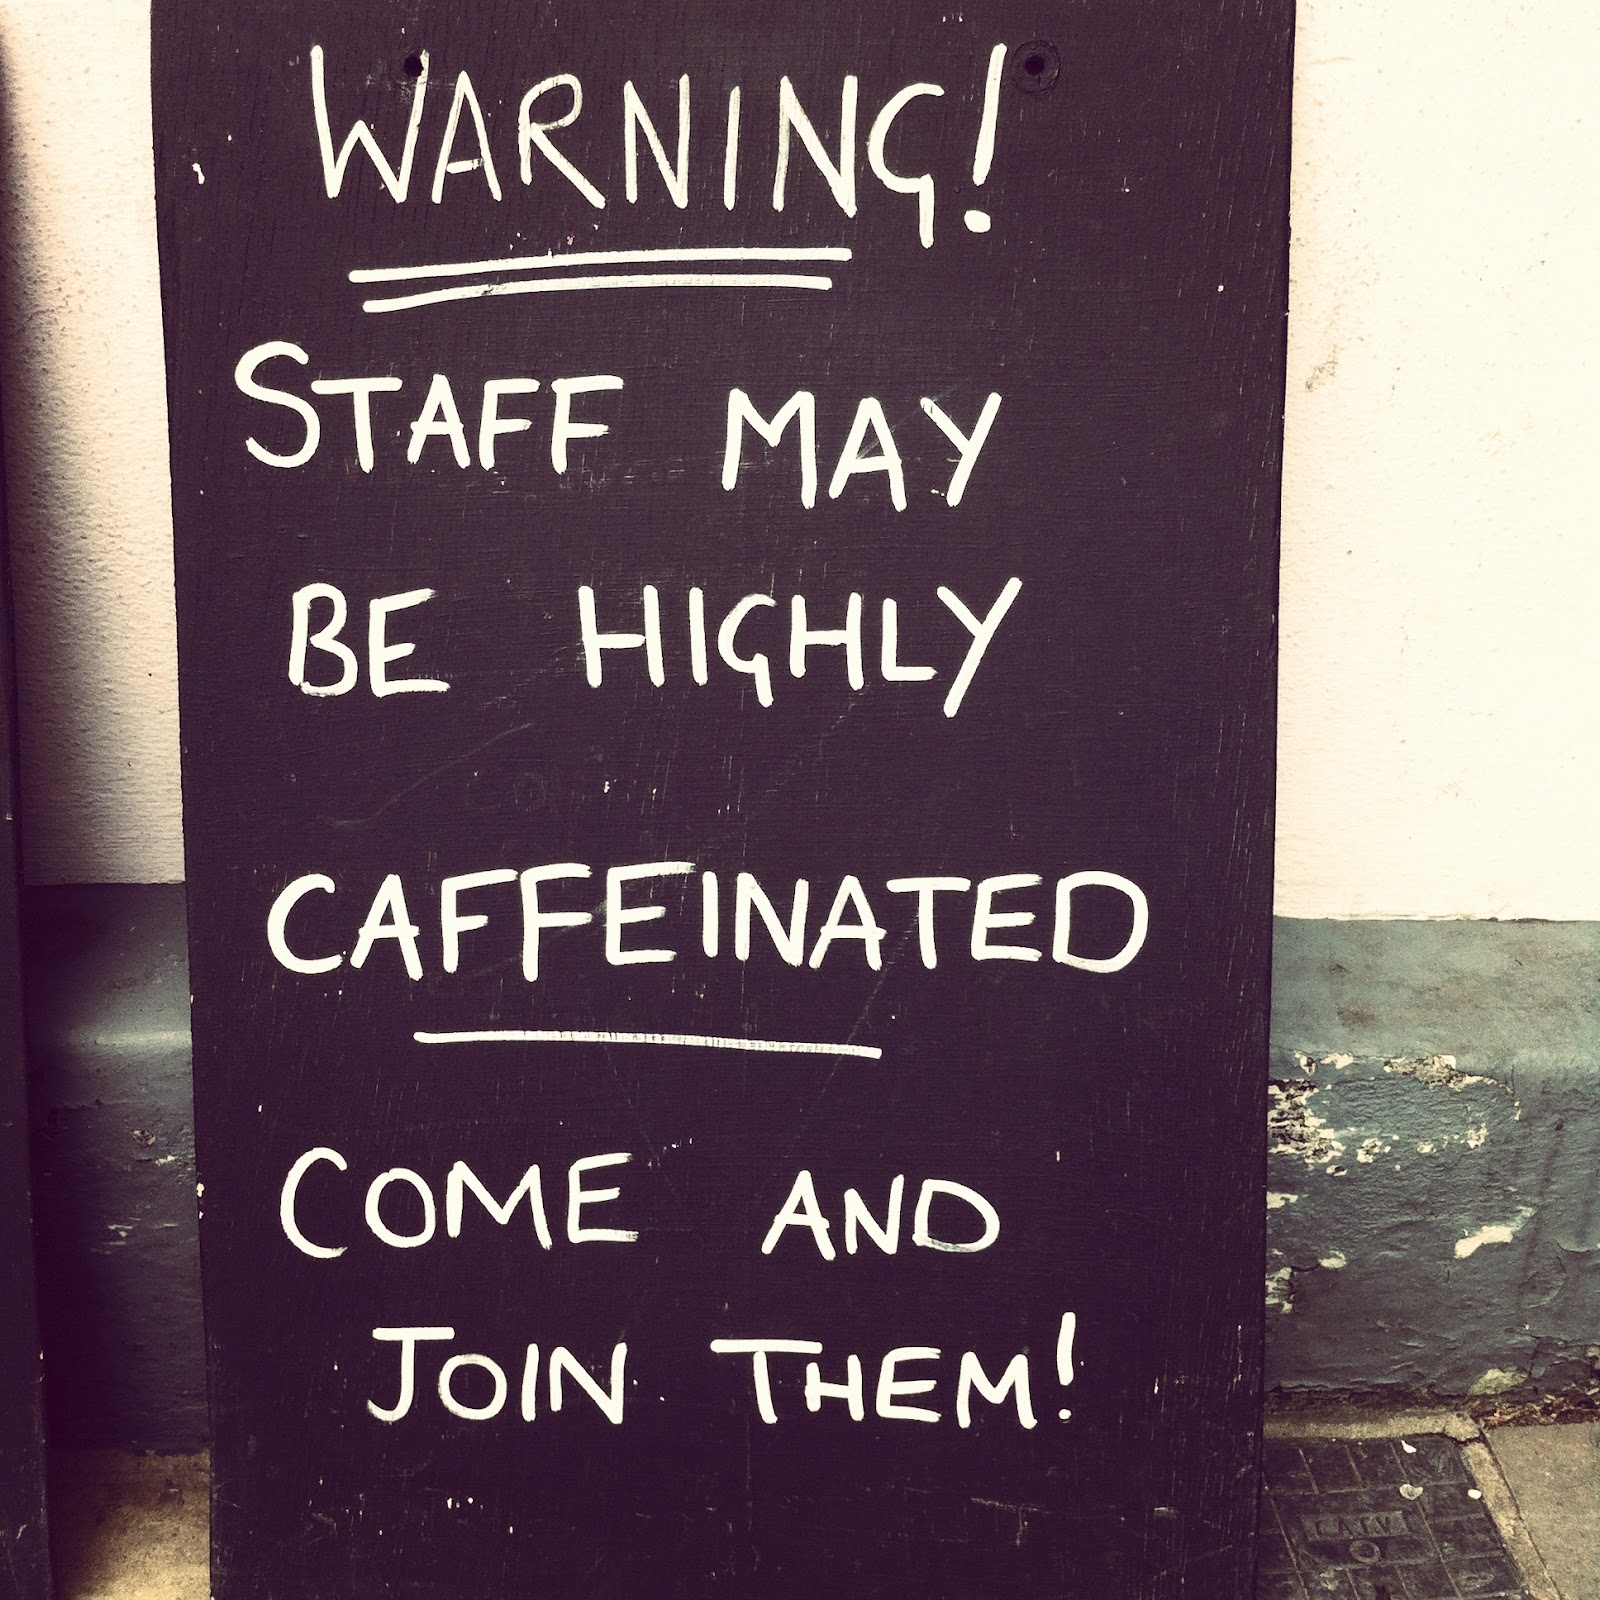 WARNING!
STAFF MAY
BE HIGHLY
CAFFEINATED
COME AND
JOIN THEM!
CATV